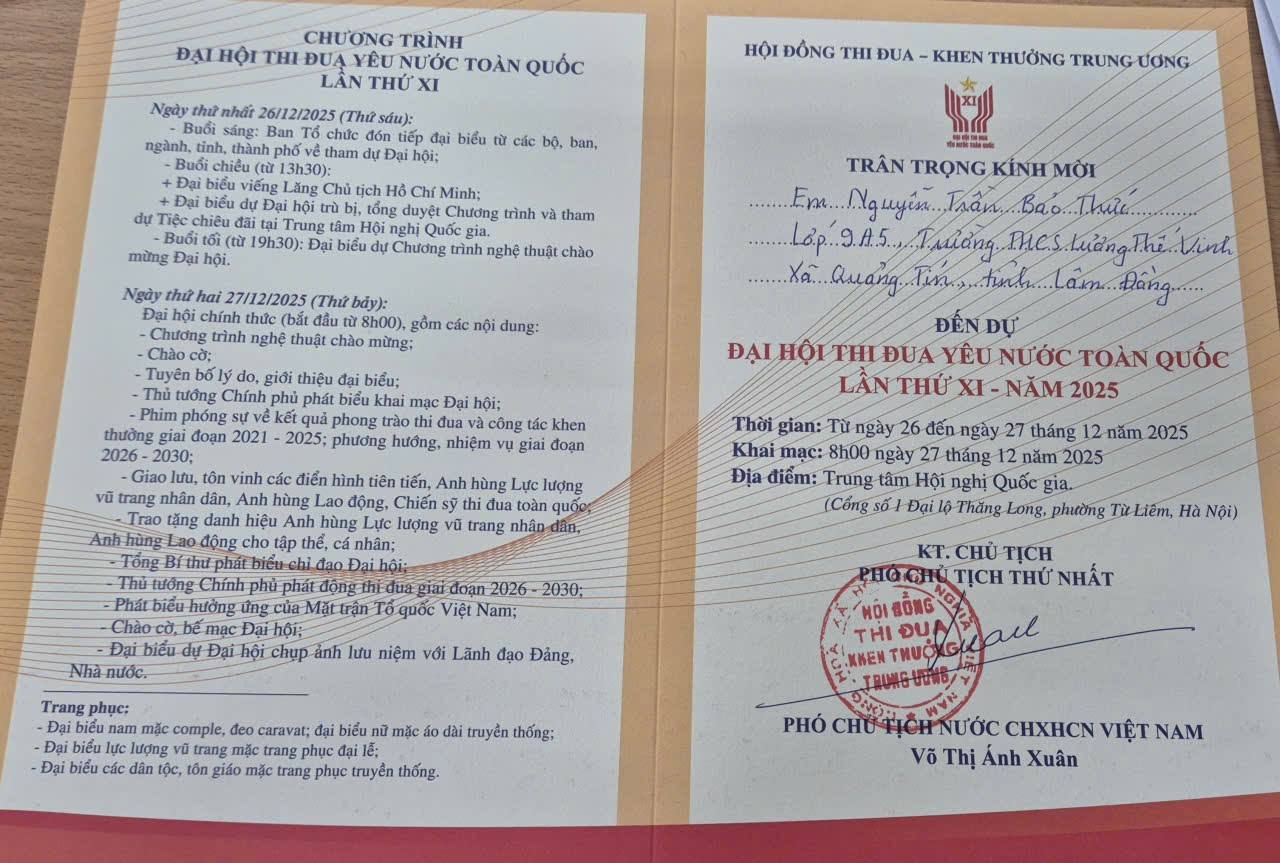 CHƯƠNG TRÌNH
ĐẠI HỘI THI ĐUA YÊU NƯỚC TOÀN QUỐC
LẦN THỨ XI
Ngày thứ nhất 26/12/2025 (Thứ sáu):
- Buổi sáng: Ban Tổ chức đón tiếp đại biểu từ các bộ, ban,
ngành, tỉnh, thành phố về tham dự Đại hội;
- Buổi chiều (từ 13h30):
+ Đại biểu viếng Lăng Chủ tịch Hồ Chí Minh;
+ Đại biểu dự Đại hội trù bị, tổng duyệt Chương trình và tham
dự Tiệc chiêu đãi tại Trung tâm Hội nghị Quốc gia.
- Buổi tối (từ 19h30): Đại biểu dự Chương trình nghệ thuật chào
mừng Đại hội.
Ngày thứ hai 27/12/2025 (Thứ bảy):
Đại hội chính thức (bắt đầu từ 8h00), gồm các nội dung:
- Chương trình nghệ thuật chào mừng;
- Chào cờ;
- Tuyên bố lý do, giới thiệu đại biểu;
- Thủ tướng Chính phủ phát biểu khai mạc Đại hội;
- Phim phóng sự về kết quả phong trào thi đua và công tác khen
thưởng giai đoạn 2021 - 2025; phương hướng, nhiệm vụ giai đoạn
2026 - 2030;
- Giao lưu, tôn vinh các điển hình tiên tiến, Anh hùng Lực lượng
vũ trang nhân dân, Anh hùng Lao động, Chiến sỹ thi đua toàn quốc;
- Trao tặng danh hiệu Anh hùng Lực lượng vũ trang nhân dân,
Anh hùng Lao động cho tập thể, cá nhân;
- Tổng Bí thư phát biểu chỉ đạo Đại hội;
- Thủ tướng Chính phủ phát động thi đua giai đoạn 2026 - 2030;
- Phát biểu hưởng ứng của Mặt trận Tổ quốc Việt Nam;
- Chào cờ, bế mạc Đại hội;
- Đại biểu dự Đại hội chụp ảnh lưu niệm với Lãnh đạo Đảng,
Nhà nước.
Trang phục:
- Đại biểu nam mặc comple, đeo caravat; đại biểu nữ mặc áo dài truyền thống;
- Đại biểu lực lượng vũ trang mặc trang phục đại lễ;
- Đại biểu các dân tộc, tôn giáo mặc trang phục truyền thống.
HỘI ĐỒNG THI ĐUA – KHEN THƯỞNG TRUNG ƯƠNG
XI
ĐẠI HỘI THI ĐUA
YÊU NƯỚC TOÀN QUỐC
TRÂN TRỌNG KÍNH MỜI
Em Nguyễn Trần Bảo Thức
Lớp 9A5, Trường THCS Lương Thế Vinh
Xã Quảng Tín, tỉnh Lâm Đồng
ĐẾN DỰ
ĐẠI HỘI THI ĐUA YÊU NƯỚC TOÀN QUỐC
LẦN THỨ XI - NĂM 2025
Thời gian: Từ ngày 26 đến ngày 27 tháng 12 năm 2025
Khai mạc: 8h00 ngày 27 tháng 12 năm 2025
Địa điểm: Trung tâm Hội nghị Quốc gia.
(Cổng số 1 Đại lộ Thăng Long, phường Từ Liêm, Hà Nội)
KT. CHỦ TỊCH
PHÓ CHỦ TỊCH THỨ NHẤT
HỘI ĐỒNG
THI ĐUA
KHEN THƯỞNG
TRUNG ƯƠNG
PHÓ CHỦ TỊCH NƯỚC CHXHCN VIỆT NAM
Võ Thị Ánh Xuân